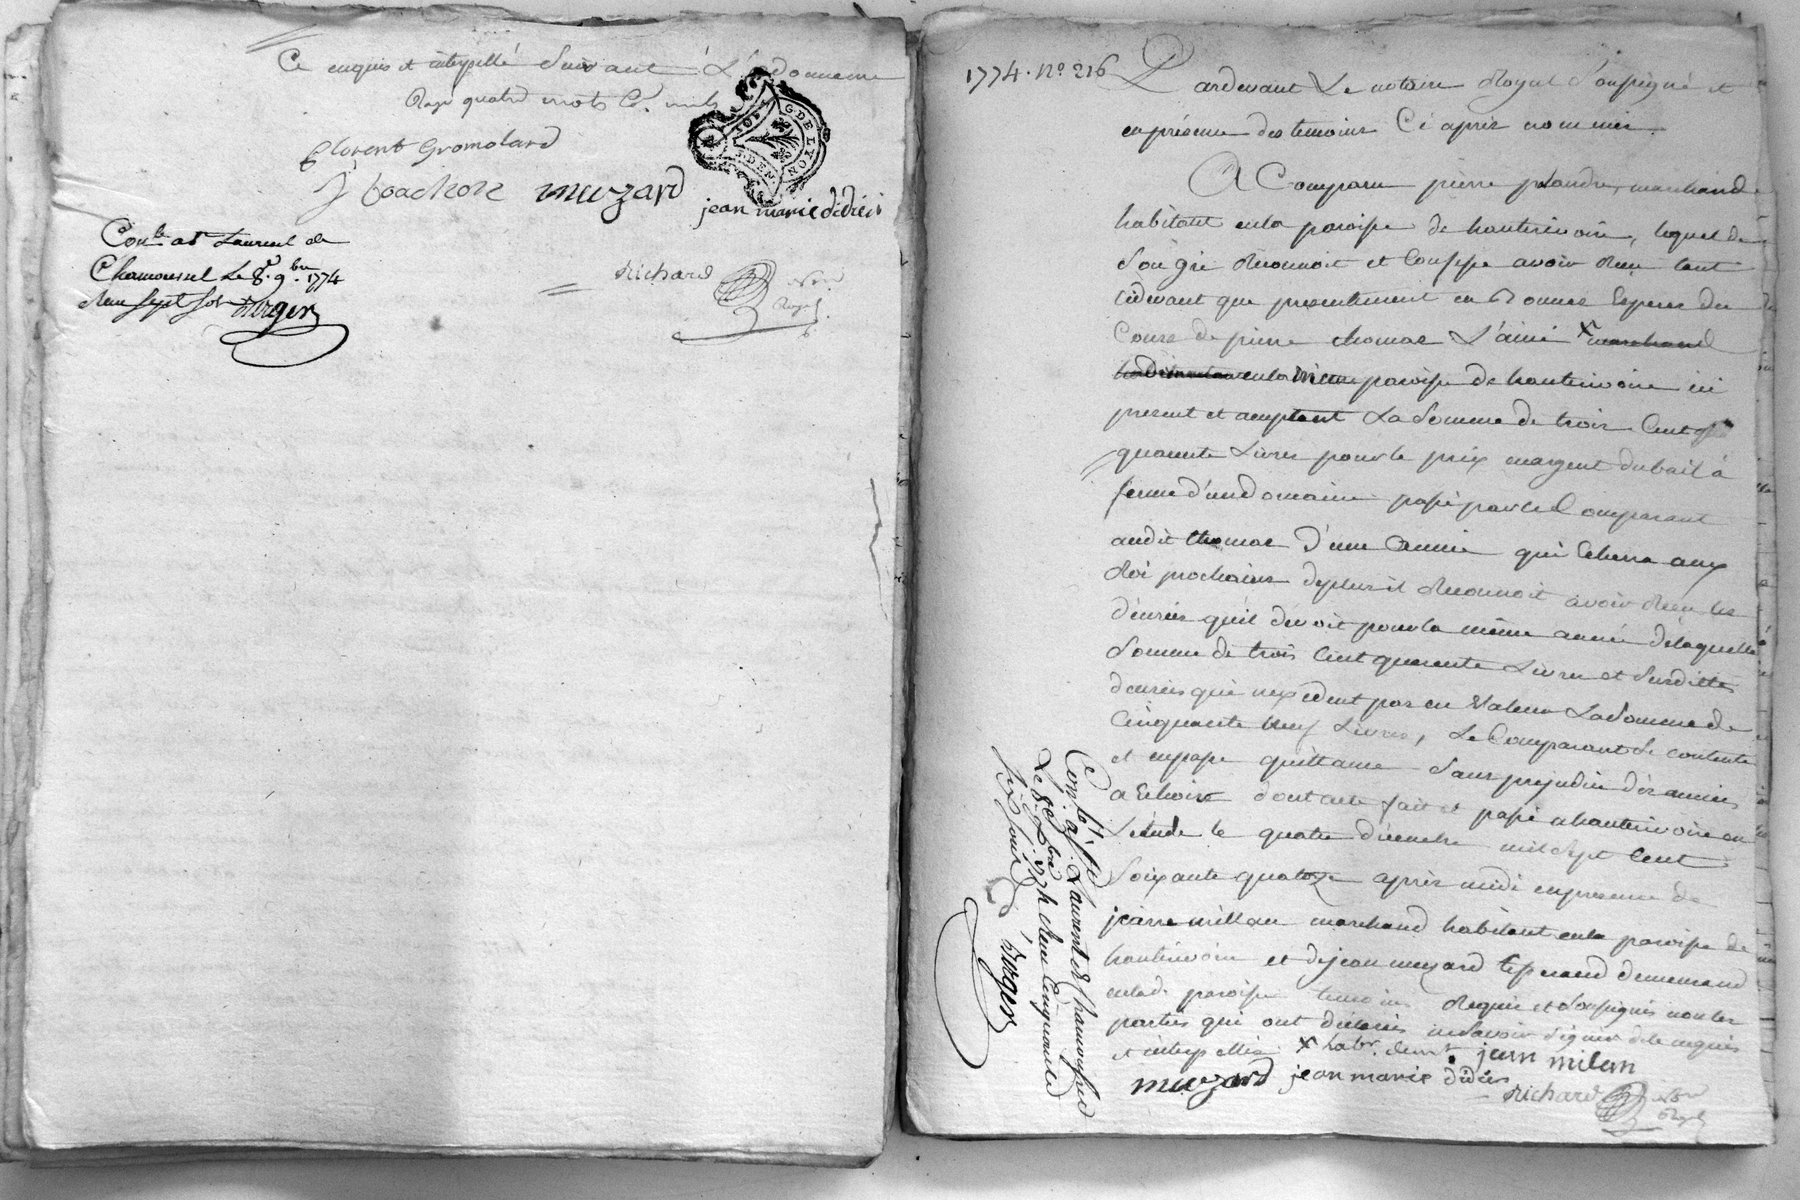 Ce enquis et interpellé Suivant L'ordonnance
Rayé quatre mots
florent Gromolard
muzard
jean marie didier
G DE LYON
Con.le a St Laurent de
Chamousset Le 8. 9.bre 1774
Reçu sept sols Berger
Richard Nre
Royal
1774. No. 216
Pardevant Le notaire Royal Soussigné et
en présence des temoins Ci après nommés
A Comparu pierre marchand
habitant en la paroisse de hauterivoire, lequel de
Son gré Reconnoit et Confesse avoir Reçu tant
cidevant que presentement en Bonnes Especes du
Cours de pierre thomas L'ainé x marchand
en la même paroisse de hauterivoire ici
present et acceptant La Somme de trois Cent
quarente Livres pour le prix en argent du bail à
ferme d'un domaine passé par le Comparant
audit thomas D'une année qui Echerra aux
Roi prochains deplus il Reconnoit avoir Reçu les
denrées qu'il devoit pour la même année de laquelle
Somme de trois Cent quarente Livres et Susdittes
denrées qui nexcedent pas en Valeur La Somme de
Cinquante neuf Livres, Le Comparant Se contente
et en passe quittance Sans prejudice des années
a Echoir dont acte fait et passé a hauterivoire en
L'étude le quatre décembre mil Sept Cent
Soixante quatorze après midi en presence de
pierre millan marchand habitant en la paroisse de
hauterivoire et de jean muzard tisserand demeurand
en lade paroisse temoins Requis et Soussignés non les
parties qui ont déclarés ne Savoir Signer de ce enquis
et interpellés x habt.
jean milan
muzard jean marie didier
Richard Nre
Royal
Con.lé a St Laurent de Chamousset
Le 8. Xbre 1774 Reçu Cinquante
six sous
Berger